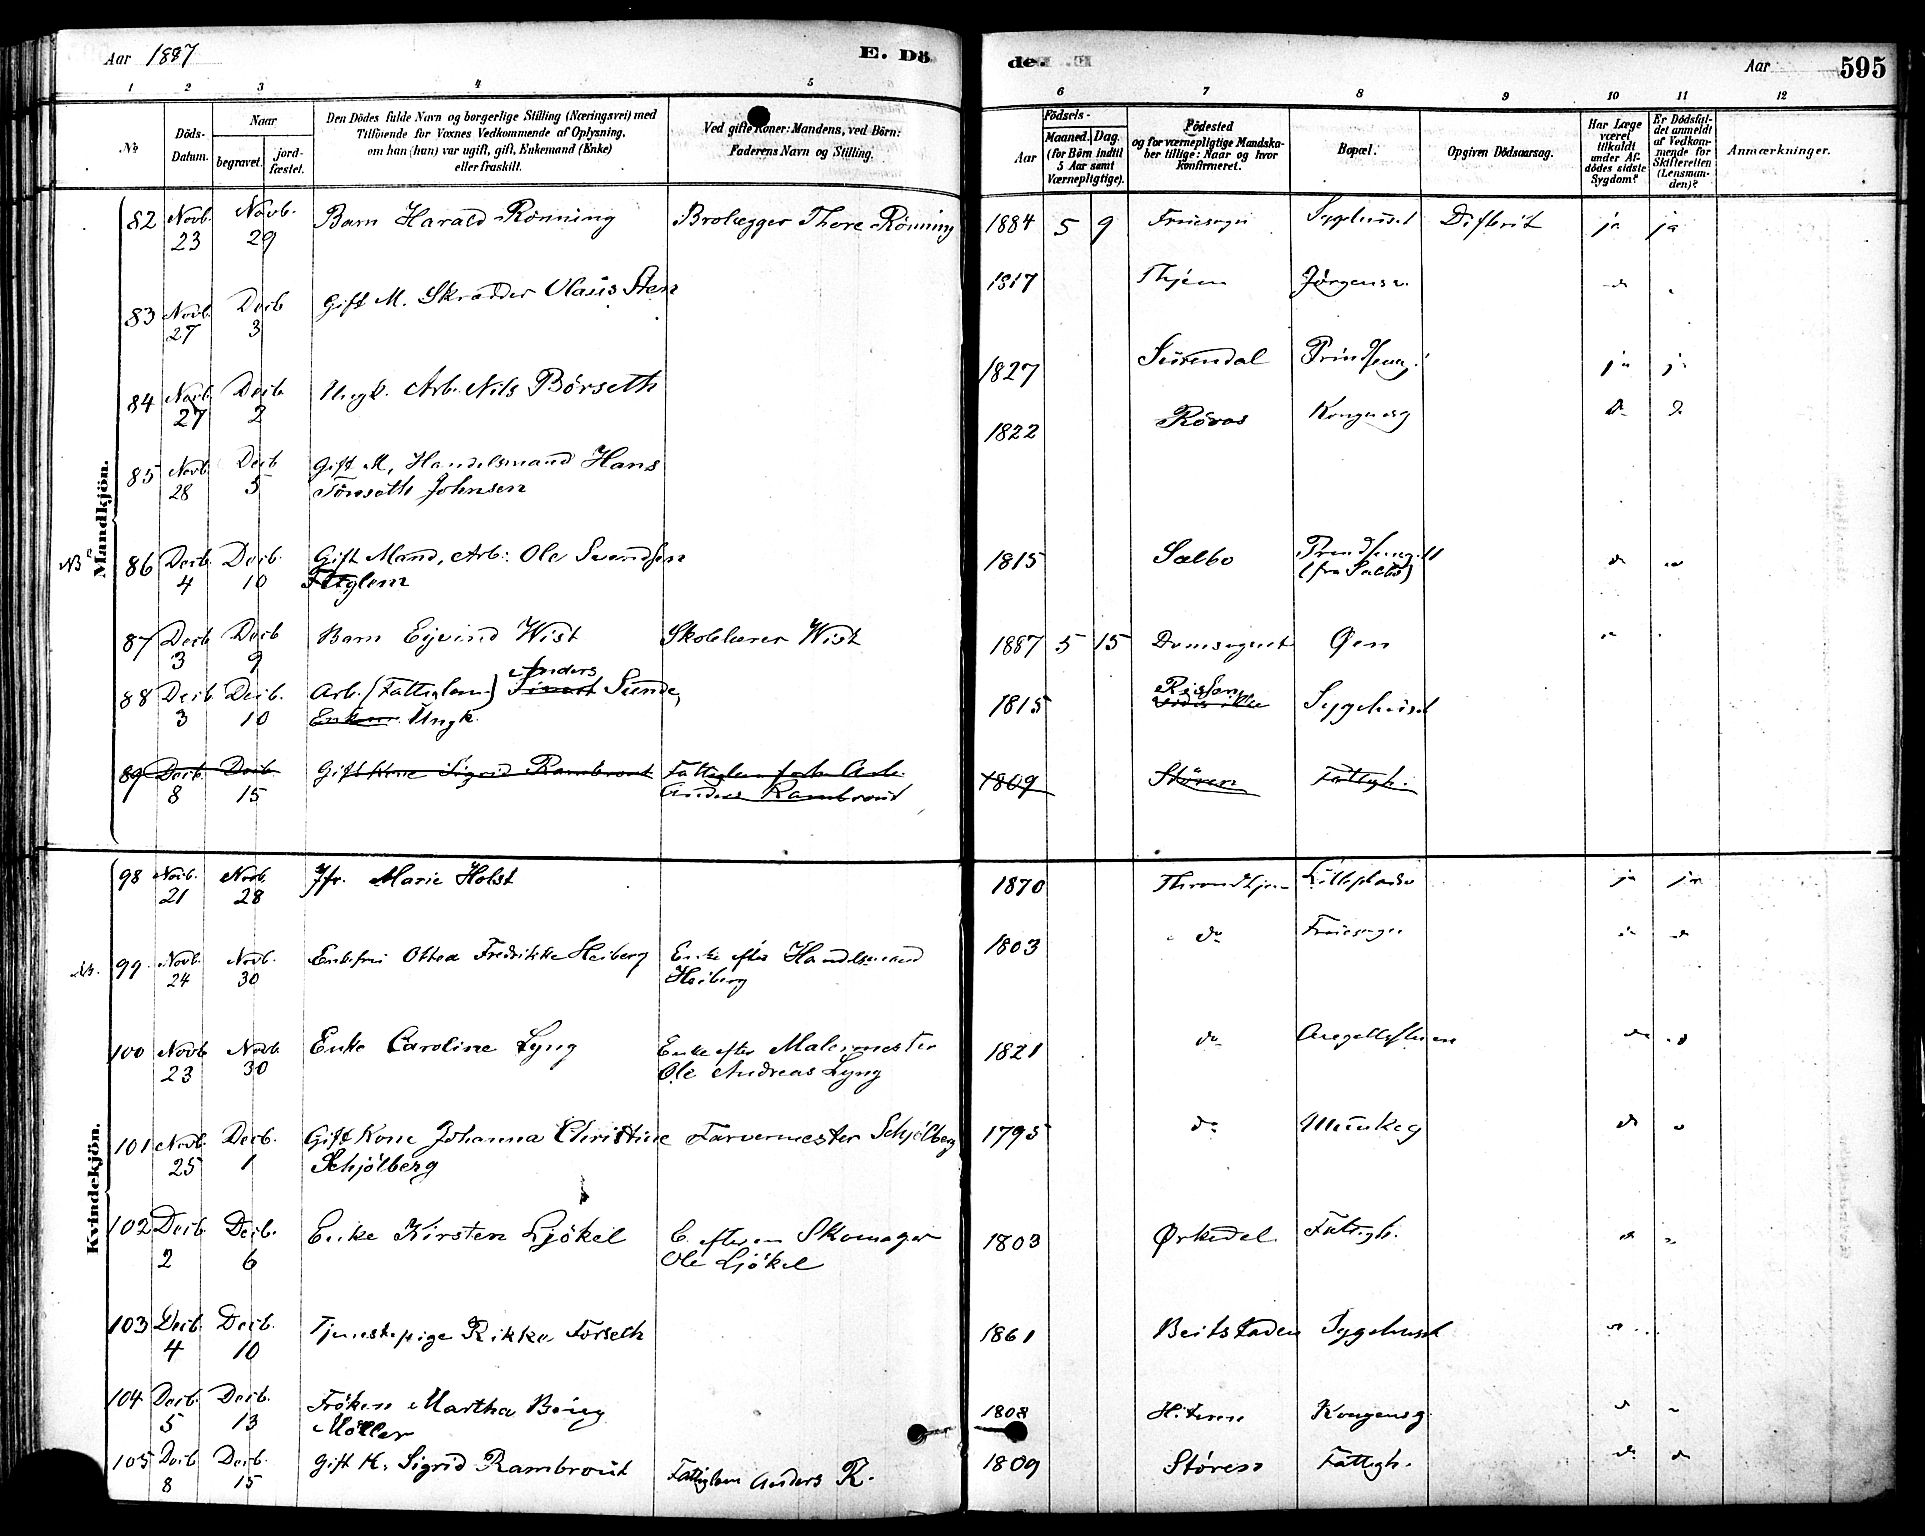 Aar 1887
E. Dö
de.
Aar
595
1 2 3 4 5 6 7 8 9 10 11 12
No
Döds-
Datum.
Naar
begravet.
jord-
fæstet.
Den Dödes fulde Navn og borgerlige Stilling (Næringsvei) med
Tilföiende for Voxnes Vedkommende af Oplysning,
om han (hun) var ugift, gift, Enkemand (Enke)
eller fraskilt.
Ved gifte Koner: Mandens, ved Börn:
Faderens Navn og Stilling.
Födsels-
Aar
Maaned. Dag.
(for Börn indtil
5 Aar samt
Værnepligtige).
Födested
og for værnepligtige Mandska-
ber tillige: Naar og hvor
konfirmeret.
Bopæl.
Opgiven Dödsaarsag.
Har Læge
været
tilkaldt
under Af-
dödes sidste
Sygdom?
Er Dödsfal-
det anmeldt
af Vedkom-
mende for
Skifteretten
(Lensman-
den)?
Anmærkninger.
Mandkjön.
82 Novb. 23 Novb. 29 Barn Harald Rönning Brolægger Thore Rönning 1884 5 9 Fruesogn Sygehuset Difterit ja ja
83 Novb. 27 Decb 3 Gift M. Skrædder Olaüs Sten 1817
84 Novb. 27 Decb. 2 Ungk. Arb. Nils Börseth 1827 Sürendal ja
85 Novb. 28 Decb 5 Gift M, Handelsmand Hans
Tönseth Johnsen 1822 Röros Kongensg
NB 86 Decb. 4 Decb. 10 Gift Mand, Arb: Ole Svendsen
Fattiglem 1815 Selbo (fra Selbo)
87 Decb 3 Decb 9 Barn Ejvind Wist Skolelærer Wist 1887 5 15 Domsognet Øen
88 Decb 3 Decb. 10 Arb. (Fattiglem) Sivert Anders Sunde,
Enkem Ungk. 1815 Rissen Sygehuset
89 Decb. 8 Decb. 15 Gift Kone Sigrid Rambrout Fattiglem Arb.
Anders Rambrout 1809 Stören Fattigh.
Kvindekjön.
98 Novb. 21 Novb. 28 Jfr. Marie Holst 1870 Throndhjem ja ja
NB. 99 Novb. 24 Novb. 30 Enkefru Ottea Fredrikke Heiberg Enke efter Handelsmand
Heiberg 1803 do
100 Novb 23 Novb. 30 Enke Caroline Lyng Enke efter Malermester
Ole Andreas Lyng 1821 do
101 Novb. 25 Decb. 1 Gift Kone Johanna Christine
Schjölberg Farvermester Schjölberg 1795 do Munkeg do
102 Decb. 2 Decb. 6 Enke Kirsten Ljökel E. efter Skomager
Ole Ljökel 1803 Ørkedal Fattigh.
103 Decb. 4 Decb. 10 Tjenestepige Rikke Forseth 1861 Beitstaden Sygehuset
104 Decb. 5 Decb. 13 Fröken Martha
Möller 1808 Hiteren Kongensg
105 Decb 8 Decb. 15 Gift K. Sigrid Rambrout Fattiglem Anders R. 1809 Stören Fattigh. do do